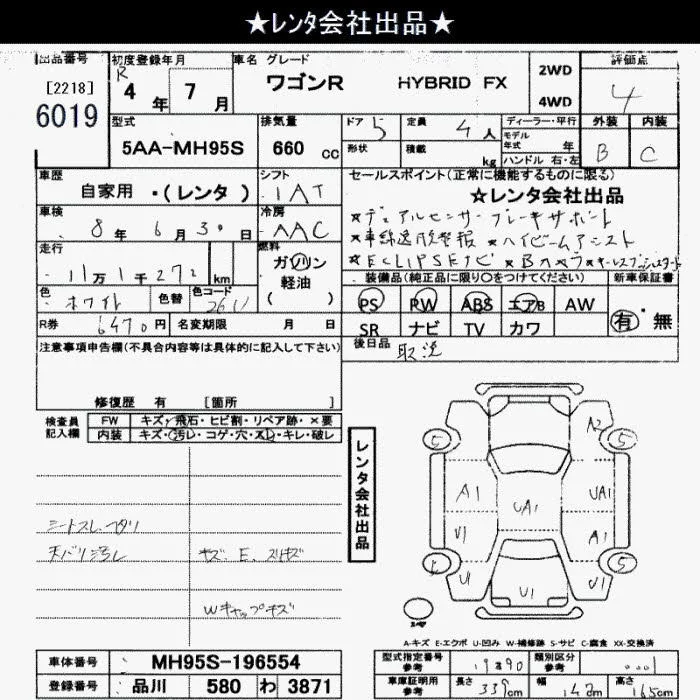 ★レンタ会社出品★
出品番号 初度登録年月 車名 グレード 評価点
[2218] R 4年 7月 ワゴンR HYBRID FX 2WD 4WD 4
6019
型式 排気量 ドア 5 定員 4人 ディーラー・平行 外装 内装
5AA-MH95S 660 cc 形状 積載 kg モデル年式 年 ハンドル 右・左 B C
車歴 シフト セールスポイント(正常に機能するものに限る)
自家用 ・(レンタ) IAT ★レンタ会社出品
車検 冷房 ★デュアルセンサーブレーキサポート
8年 6月 30日 AAC ★車線逸脱警報 ★ハイビームアシスト
走行 燃料 ★ECLIPSEナビ ★Bカメラ ★キーレスプッシュスタート
11万1千272km ガソリン 軽油 ( ) 装備品(純正品に限り○をつけてください) 新車保証書
色 ホワイト 色替 色コード 26U PS PW ABS エアB AW 有・無
R券 6470円 名変期限 月 日 SR ナビ TV カワ
注意事項申告欄(不具合内容等は具体的に記入して下さい) 後日品 取説
修復歴 有 [箇所 ]
検査員記入欄 FW キズ・飛石・ヒビ割・リペア跡・×要
内装 キズ・汚レ・コゲ・穴・スレ・キレ・破レ
レンタ会社出品
A2
5 5
A1 UA1 UA1
U1 A1
シートスレ、ヘタリ
天バリ汚レ キズ、E、スリキズ
5
U1 U1 U1
Wキャップキズ
A-キズ E-エクボ U-凹み W-補修跡 S-サビ C-腐食 XX-交換済
車体番号 MH95S-196554 型式指定番号参考 19890 類別区分参考 0001
登録番号 品川 580 わ 3871 車庫証明用参考 長さ 339cm 幅 147cm 高さ 165cm